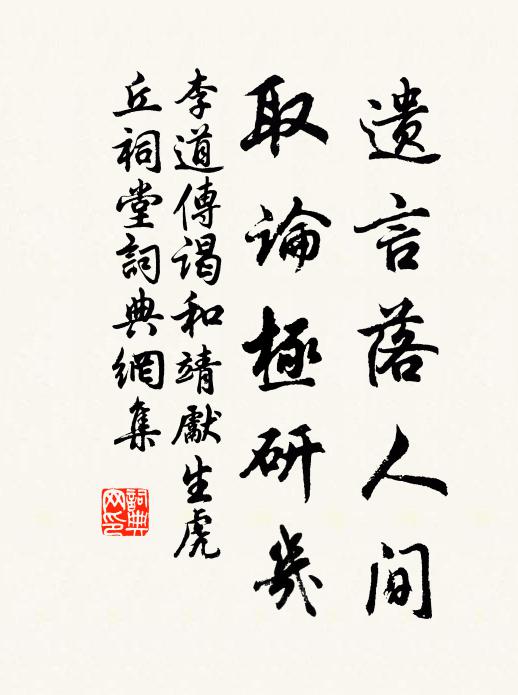 遗言落人间
取論極研幾
李道傳谒和靖獻生虎
丘祠堂詞典網集
詞典网印